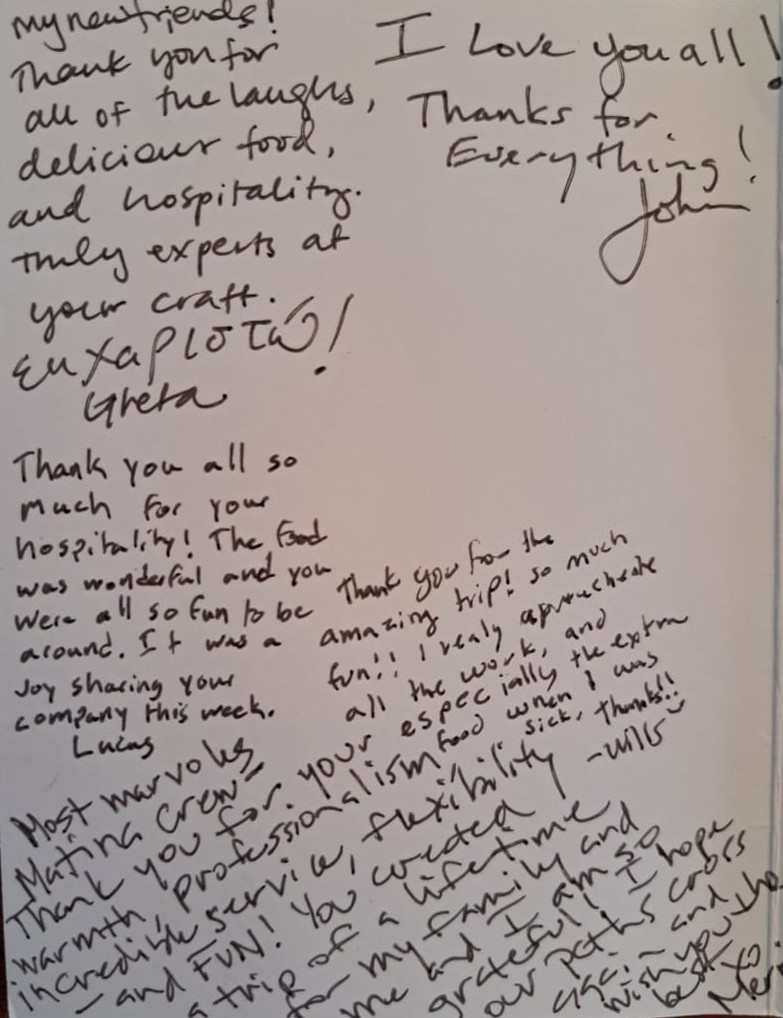 my new friends!
Thank you for
all of the laughs,
delicious food,
and hospitality.
Truly experts at
your craft.
ευχαριστώ!
Greta
I Love you all!
Thanks for
Everything!
John
Thank you all so
much for your
hospitality! The food
was wonderful and you
were all so fun to be
around. It was a
joy sharing your
company this week.
Lucas
Thank you for the
amazing trip! so much
fun!! I realy apprucheate
all the work, and
especially the extra
food when I was
sick, thanks!!
-Wills
Most marvolus
Matina Crew-
Thank you for your
warmth, professionalism
incredible service, flexibility
- and FUN! You created
a trip of a lifetime
for my family and
me and I am so
grateful! I hope
our paths cross
again and
wish you the
best